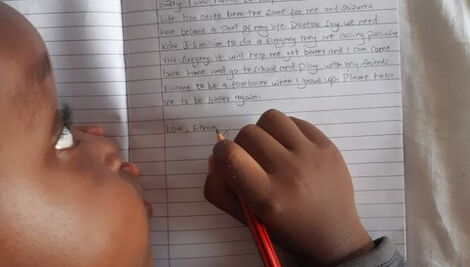 life has never been the same for me and seizures
have become a part of my life. Doctor Say we need
KSH 3.5 million to do a surgery they are calling
VNS Surgery. it will help me get better and I can come
back home and go to school and play with my friends
I want to be a footballer when I grow up. Please help
me to be better again.
Love, Ethan